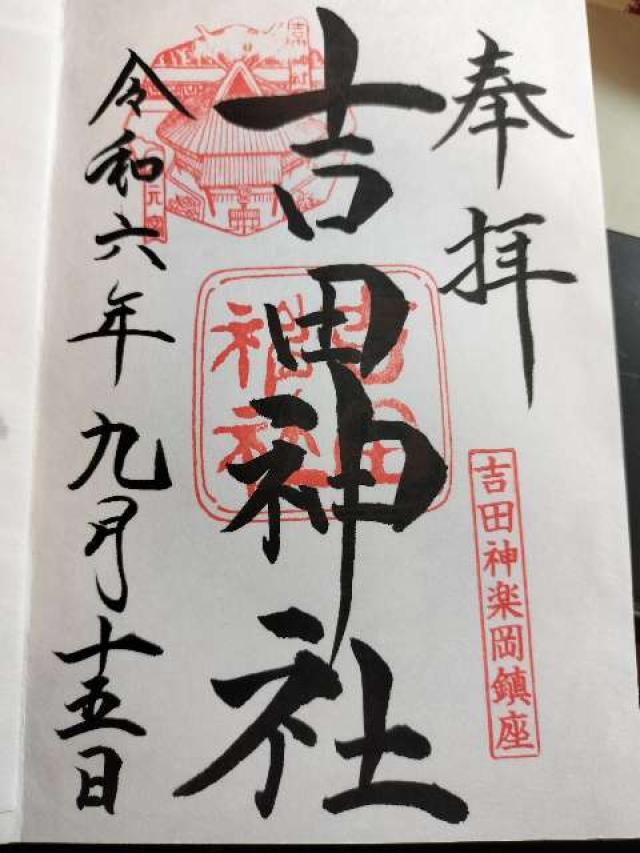 奉拝
吉田神楽岡鎮座
吉田神社
吉田
神社
令和六年九月十五日